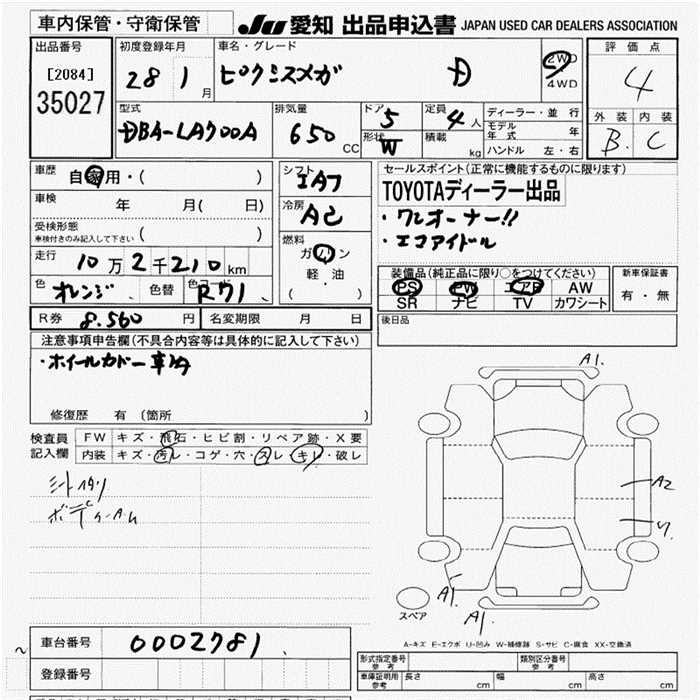 車内保管・守衛保管
JU 愛知 出品申込書 JAPAN USED CAR DEALERS ASSOCIATION
出品番号 初度登録年月 車名・グレード 2WD 4WD 評価点
[2084]
35027
28 1 月
ピクシスメガ D
4
型式 排気量 ドア 定員 ディーラー・並行 外装 内装
DBA-LA700A 650 CC 5 4 人
形状 W 積載 kg
モデル年式 年
ハンドル 左・右
B. C
車歴 自家用・( )
シフト IAT
セールスポイント(正常に機能するものに限ります)
TOYOTAディーラー出品
車検 年 月( 日)
冷房 AC
・ワンオーナー!!
受検形態 ( )
車検付きのみ記入して下さい
・エコアイドル
走行 10万2千210km
燃料 ガソリン
軽・油
( )
装備品(純正品に限り○をつけてください)
新車保証書
PS PW エアB AW
SR ナビ TV カワシート
有・無
色 オレンジ 色替 色コード R71
R券 8.560 円 名変期限 月 日
後日品
注意事項申告欄(不具合内容等は具体的に記入して下さい)
・ホイールカバー車内
修復歴 有 (箇所 )
検査員記入欄
FW キズ・飛石・ヒビ割・リペア跡・X要
内装 キズ・汚レ・コゲ・穴・スレ・キレ・破レ
A1.
A2
A1.
A1.
スペア
A-キズ E-エクボ U-凹み W-補修跡 S-サビ C-腐食 XX-交換済
車台番号 0002781
登録番号
形式指定番号 参考 類別区分番号 参考
車庫証明用 参考 長さ cm 幅 cm 高さ cm